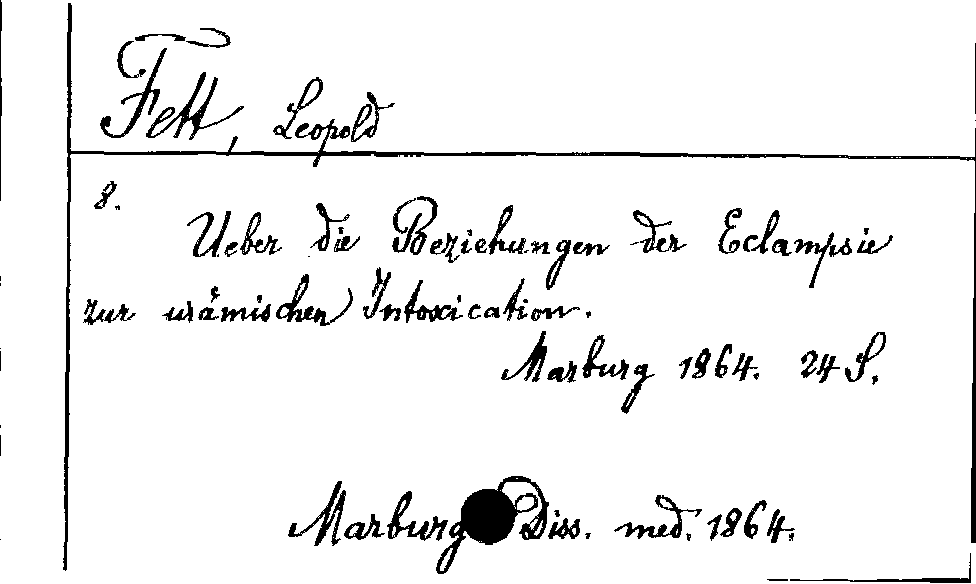 Fett, Leopold
8.
Ueber die Beziehungen der Eclampsie
zur urämischen Intoxication.
Marburg 1864. 24 S.
Marburg Diss. med. 1864.